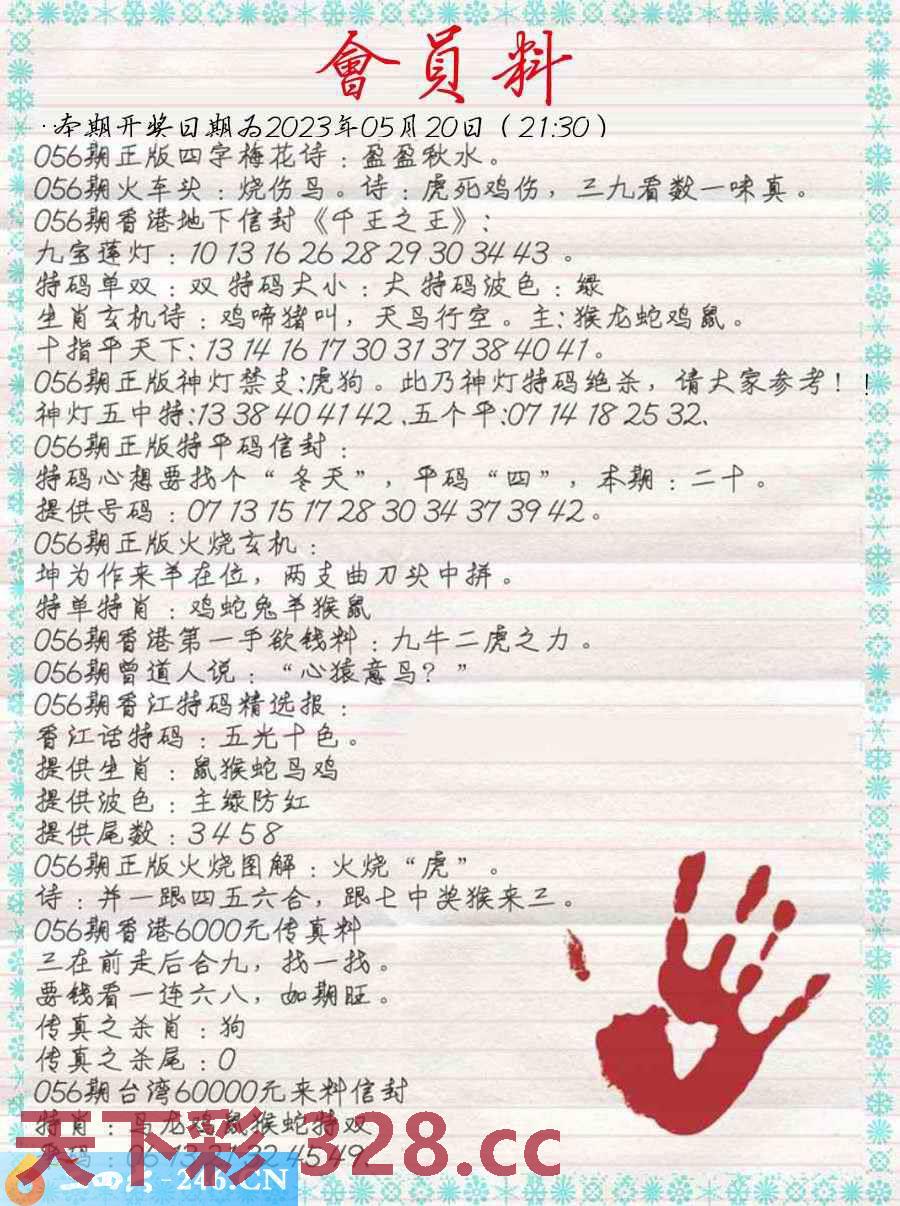 會員料
·本期开奖日期为2023年05月20日（21:30）
056期正版四字梅花诗：盈盈秋水。
056期火车头：烧伤鸟。诗：虎死鸡伤，三九看数一味真。
056期香港地下信封《千王之王》：
九宝莲灯：10 13 16 26 28 29 30 34 43 。
特码单双：双 特码大小：大 特码波色：绿
生肖玄机诗：鸡啼猪叫，天马行空。主：猴龙蛇鸡鼠。
十指平天下：13 14 16 17 30 31 37 38 40 41。
056期正版神灯禁支:虎狗。此乃神灯特码绝杀，请大家参考！！
神灯五中特:13 38 40 41 42 .五个平:07 14 18 25 32.
056期正版特平码信封：
特码心想要找个“冬天”，平码“四”，本期：二十。
提供号码：07 13 15 17 28 30 34 37 39 42。
056期正版火烧玄机：
坤为作来羊在位，两支曲刀头中拼。
特单特肖：鸡蛇兔羊猴鼠
056期香港第一手欲钱料：九牛二虎之力。
056期曾道人说：“心猿意马？”
056期香江特码精选报：
香江话特码：五光十色。
提供生肖：鼠猴蛇马鸡
提供波色：主绿防红
提供尾数：3 4 5 8
056期正版火烧图解：火烧“虎”。
诗：并一跟四五六合，跟七中奖猴来三。
056期香港6000元传真料
三在前走后合九，找一找。
要钱看一连六八，如期旺。
传真之杀肖：狗
传真之杀尾：0
056期台湾60000元来料信封
特肖：马龙鸡鼠猴蛇特双
天下彩.328.cc
-246.CN